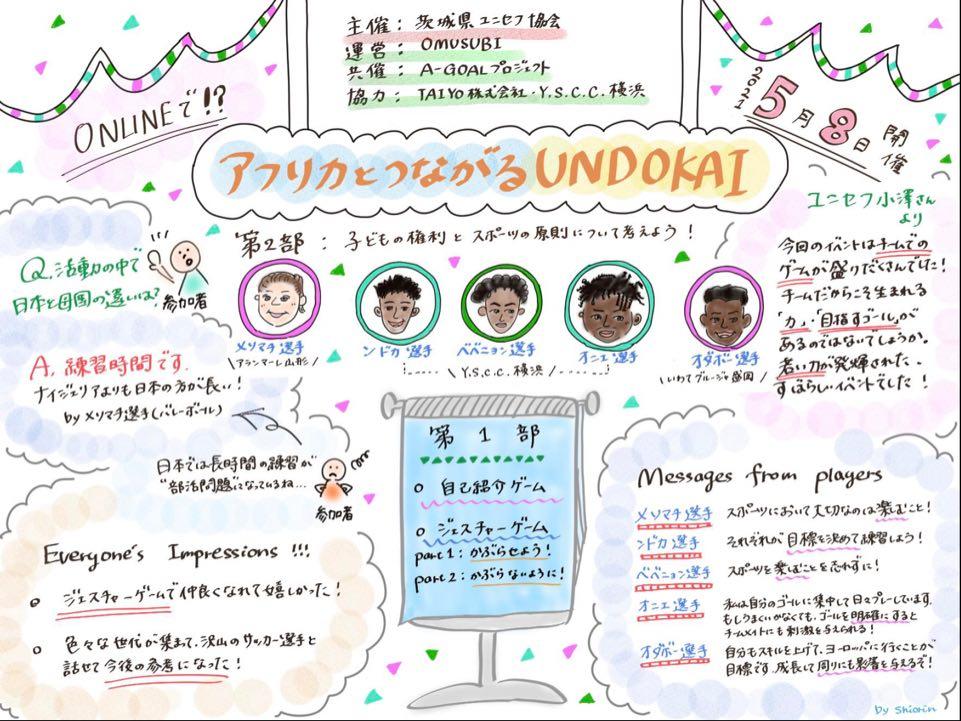 主催：茨城県ユニセフ協会
運営：OMUSUBI
共催：A-GOALプロジェクト
協力：TAIYO株式会社・Y.S.C.C.横浜
ONLINEで!?
2021 5月8日 開催
アフリカとつながるUNDOKAI
第2部：子どもの権利とスポーツの原則について考えよう！
メリマチ選手
\アランマーレ山形/
ンドカ選手
ベベニョン選手
オニエ選手
\Y.S.C.C.横浜/
オダボー選手
\いわてグルージャ盛岡/
Q.活動の中で
日本と母国の違いは？
参加者
A.練習時間です.
ナイジェリアよりも日本の方が長い！
by メリマチ選手(バレーボール)
日本では長時間の練習が
"部活問題"になっているね…
参加者
Everyone's Impressions !!!
ジェスチャーゲームで仲良くなれて嬉しかった！
色々な世代が集まって、沢山のサッカー選手と
話せて今後の参考になった！
第1部
自己紹介ゲーム
ジェスチャーゲーム
part1：かぶらせよう！
part2：かぶらないように！
ユニセフ小澤さん
より
今回のイベントはチームでの
ゲームが盛りだくさんでした！
チームだからこそ生まれる
「力」、「目指すゴール」が
あるのではないでしょうか。
若い力が発揮された、
すばらしいイベントでした！
Messages from players
メリマチ選手 スポーツにおいて大切なのは楽しむこと！
ンドカ選手 それぞれが目標を決めて練習しよう！
ベベニョン選手 スポーツを楽しむことを忘れずに！
オニエ選手 私は自分のゴールに集中して日々プレーしています。
もしうまくいかなくても、ゴールを明確にすると
チームメイトにも刺激を与えられる！
オダボー選手 自分もスキルを上げて、ヨーロッパに行くことが
目標です。成長して周りにも影響を与えるぞ！
by shiorin